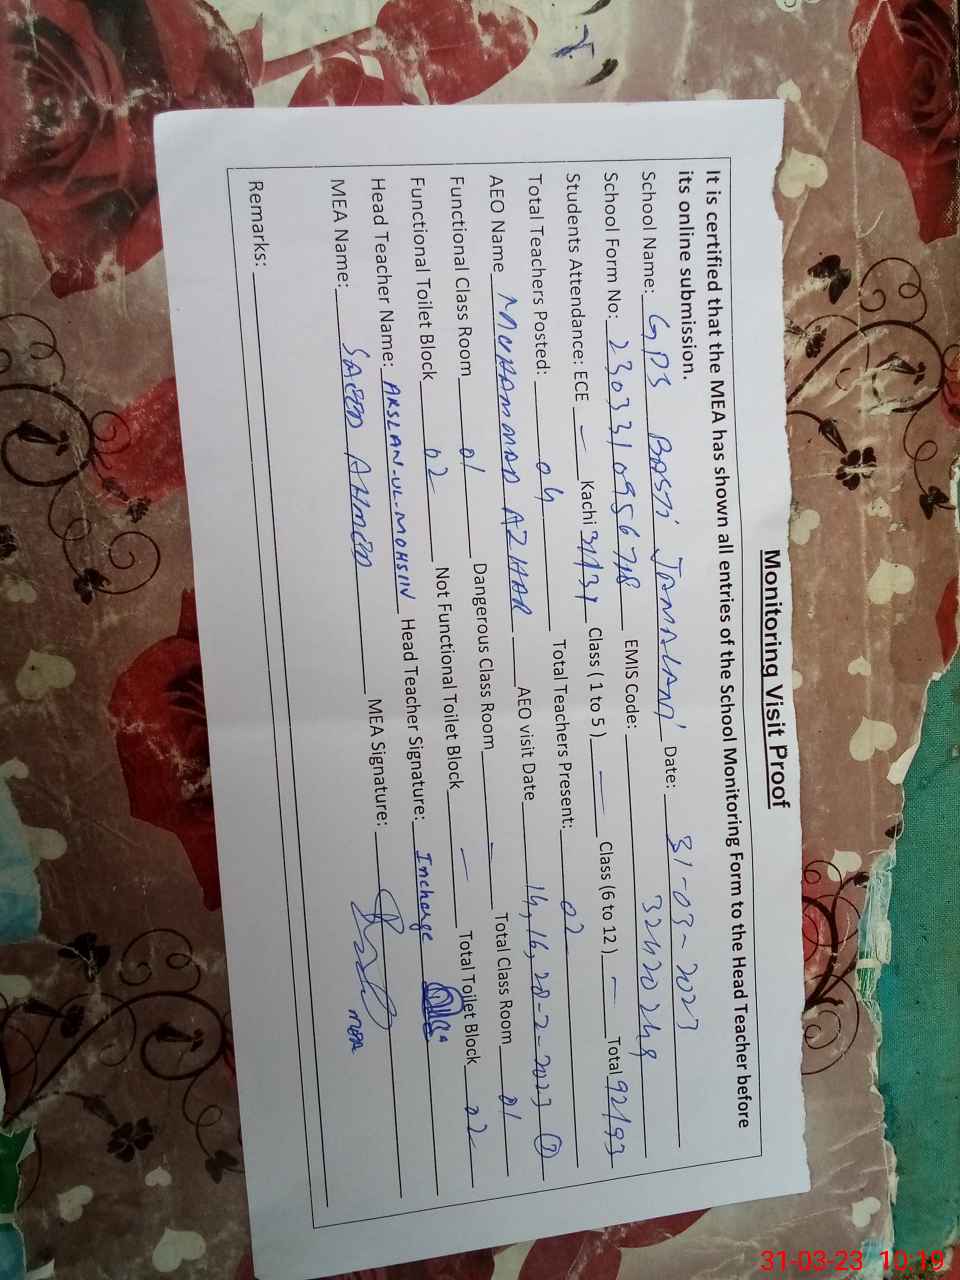 Monitoring Visit Proof
It is certified that the MEA has shown all entries of the School Monitoring Form to the Head Teacher before
its online submission.
School Name: GPS BASTI JAMALANI Date: 31-03-2023
School Form No: 230331095678 EMIS Code: 32420249
Students Attendance: ECE — Kachi 31/31 Class (1 to 5) — Class (6 to 12) — Total 92/93
Total Teachers Posted: 04 Total Teachers Present: 02
AEO Name MUHAMMAD AZHAR AEO visit Date 14, 16, 28-2-2023
Functional Class Room 01 Dangerous Class Room — Total Class Room 01
Functional Toilet Block 02 Not Functional Toilet Block — Total Toilet Block 02
Head Teacher Name: ARSLAN-UL-MOHSIN Head Teacher Signature: Incharge
MEA Name: SAEED AHMED MEA Signature: MEA
Remarks:
31-03-23 10:19